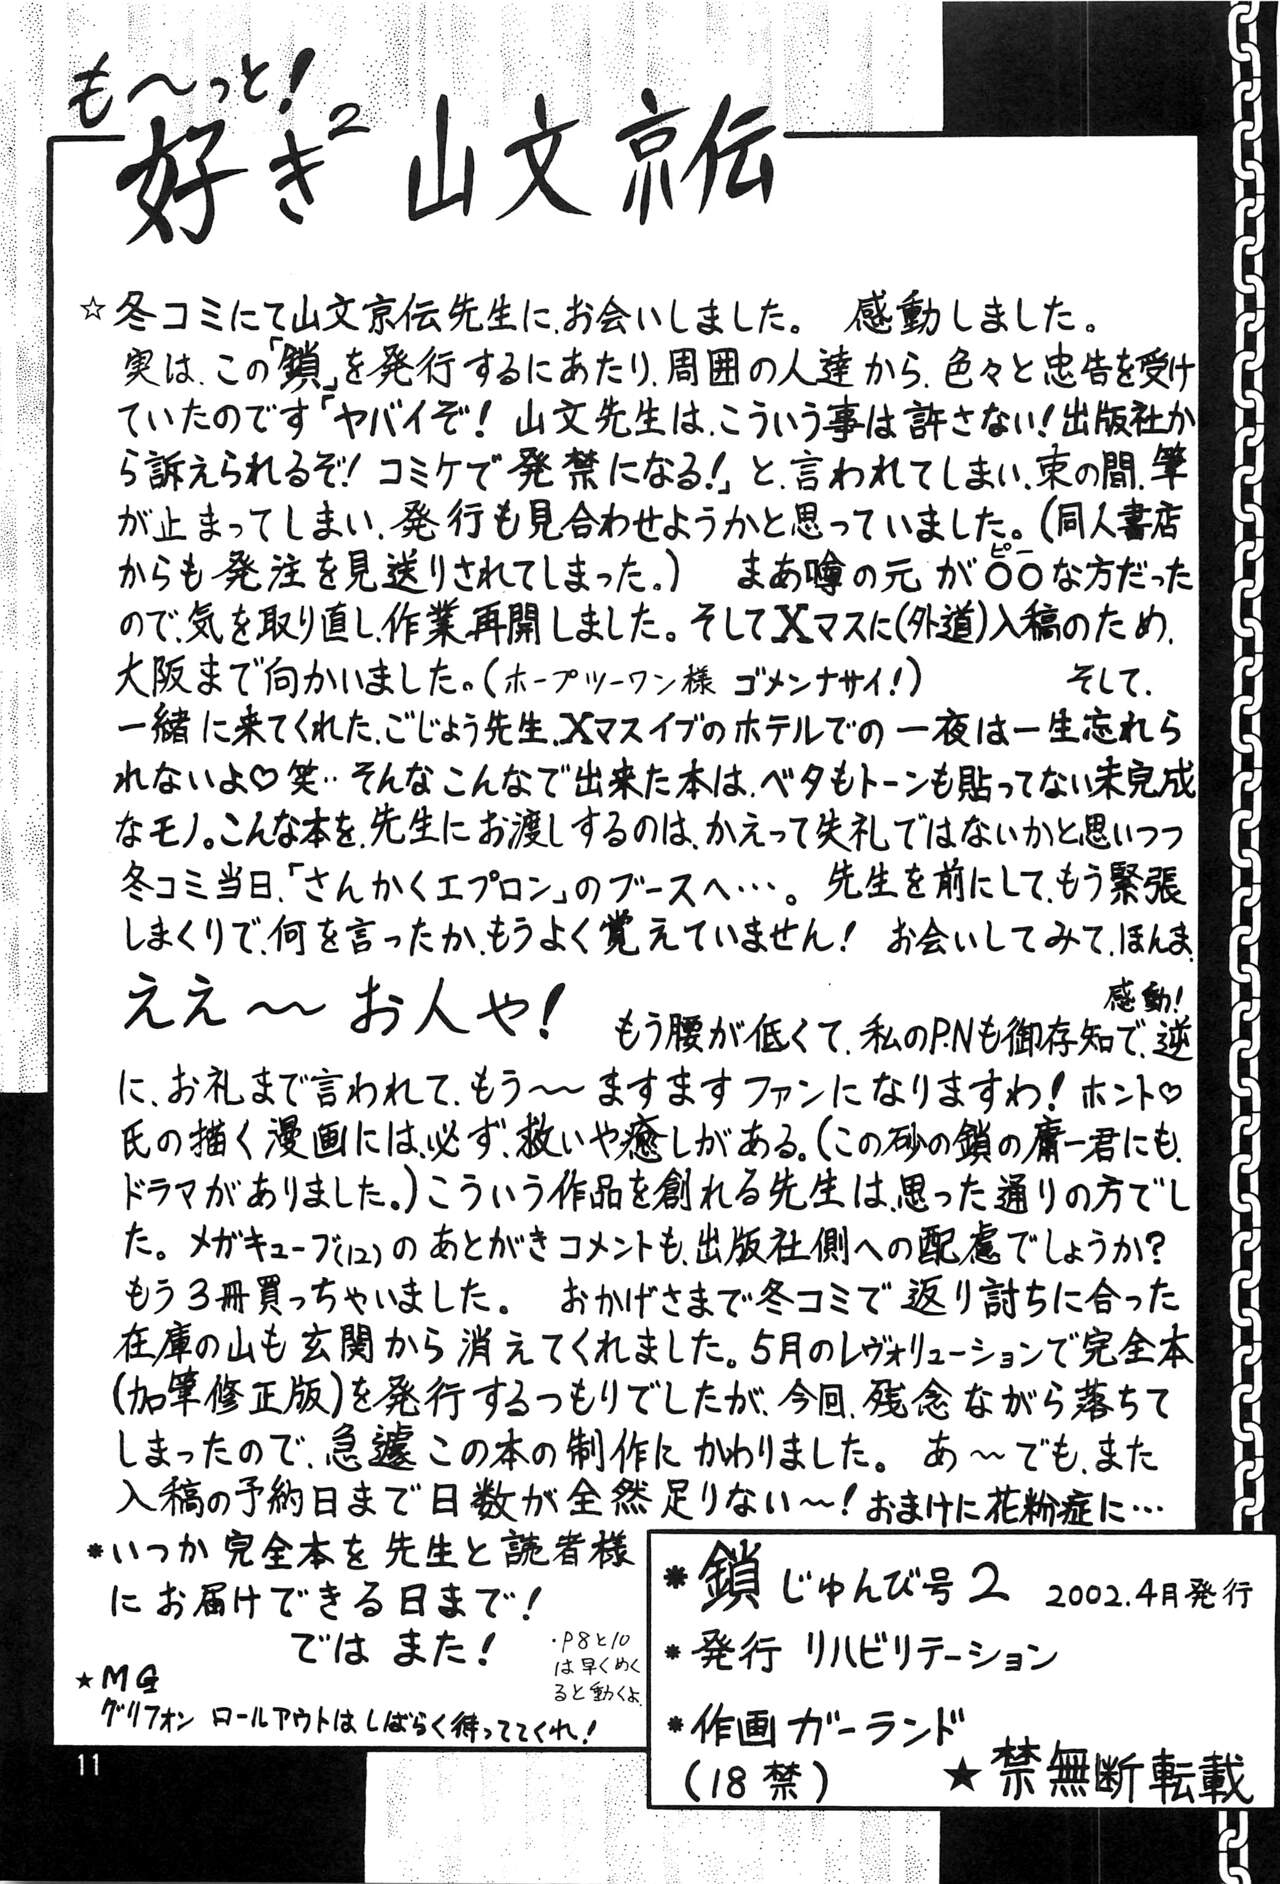 も〜っと!
好き² 山文京伝
☆冬コミにて山文京伝先生に、お会いしました。 感動しました。
実は、この「鎖」を発行するにあたり、周囲の人達から、色々と忠告を受け
ていたのです「ヤバイぞ! 山文先生は、こういう事は許さない!出版社か
ら訴えられるぞ! コミケで発禁になる!」と、言われてしまい、束の間、筆
が止まってしまい、発行も見合わせようかと思っていました。(同人書店
からも発注を見送りされてしまった。) まあ噂の元が○○な方だった
ピー
ので、気を取り直し、作業再開しました。そしてXマスに(外道)入稿のため、
大阪まで向かいました。(ホープツーワン様 ゴメンナサイ!) そして、
一緒に来てくれた、ごじょう先生、Xマスイブのホテルでの一夜は一生忘れら
れないよ♡笑‥そんなこんなで出来た本は、ベタもトーンも貼ってない未完成
なモノ。こんな本を、先生にお渡しするのは、かえって失礼ではないかと思いつつ
冬コミ当日、「さんかくエプロン」のブースへ…。 先生を前にして、もう緊張
しまくりで、何を言ったか、もうよく覚えていません! お会いしてみて、ほんま、
ええ〜〜お人や!
感動!
もう腰が低くて、私のP.Nも御存知で、逆
に、お礼まで言われて、もう〜〜ますますファンになりますわ! ホント♡
氏の描く漫画には、必ず、救いや癒しがある。(この砂の鎖の庸一君にも、
ドラマがありました。)こういう作品を創れる先生は、思った通りの方でし
た。メガキューブ(12)のあとがきコメントも、出版社側への配慮でしょうか?
もう3冊買っちゃいました。 おかげさまで冬コミで返り討ちに合った
在庫の山も玄関から消えてくれました。5月のレヴォリューションで完全本
(加筆修正版)を発行するつもりでしたが、今回、残念ながら落ちて
しまったので、急遽この本の制作にかわりました。 あ〜でも、また
入稿の予約日まで日数が全然足りない〜!おまけに花粉症に…
*いつか完全本を先生と読者様
にお届けできる日まで!
では また!
・P8と10
は早くめく
ると動くよ。
★MG
グリフォン ロールアウトはしばらく待っててくれ!
*鎖じゅんび号2 2002.4月発行
*発行 リハビリテーション
*作画 ガーランド
(18禁) ★禁無断転載
11